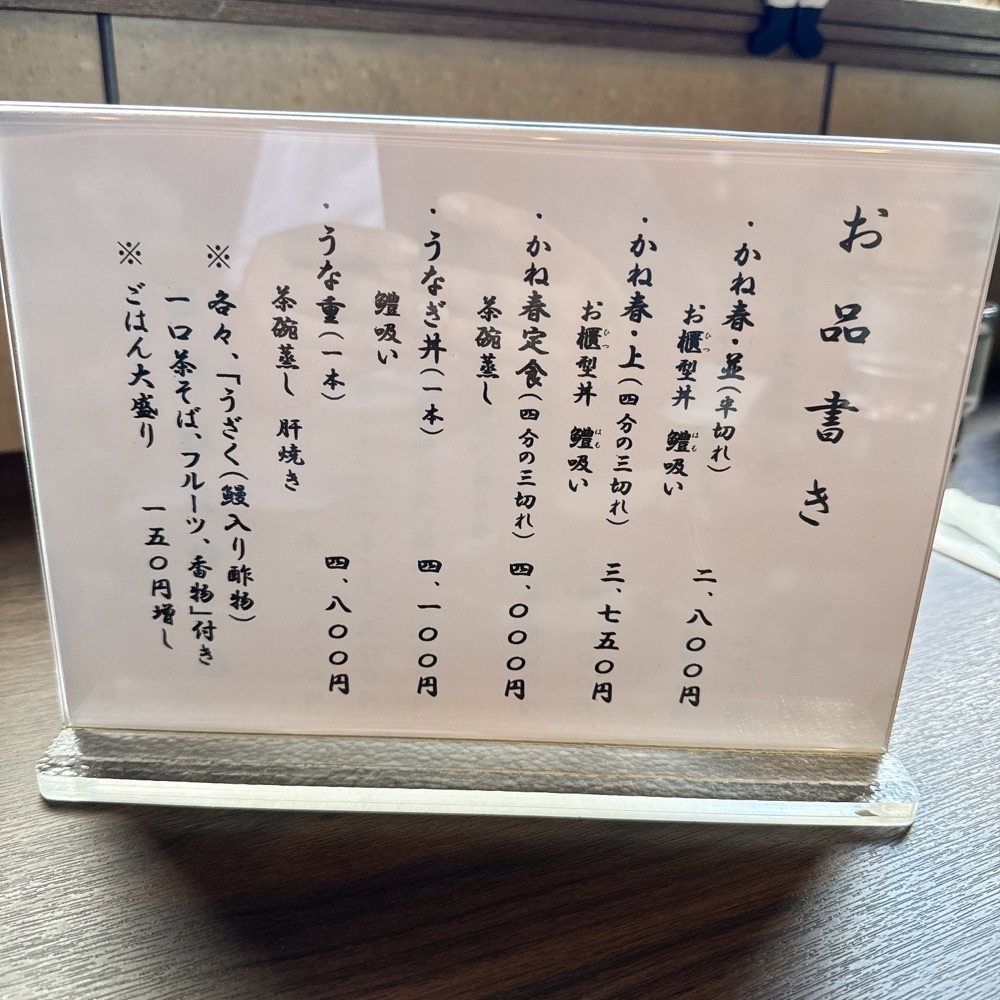 お品書き
・かね春・並(半切れ)
お櫃型丼 鱧吸い 二、八〇〇円
・かね春・上(四分の三切れ)
お櫃型丼 鱧吸い 三、七五〇円
・かね春定食(四分の三切れ)
茶碗蒸し 四、〇〇〇円
・うなぎ丼(一本)
鱧吸い 四、一〇〇円
・うな重(一本)
茶碗蒸し 肝焼き 四、八〇〇円
※各々、「うざく(鰻入り酢物)
一口茶そば、フルーツ、香物」付き
※ごはん大盛り 一五〇円増し